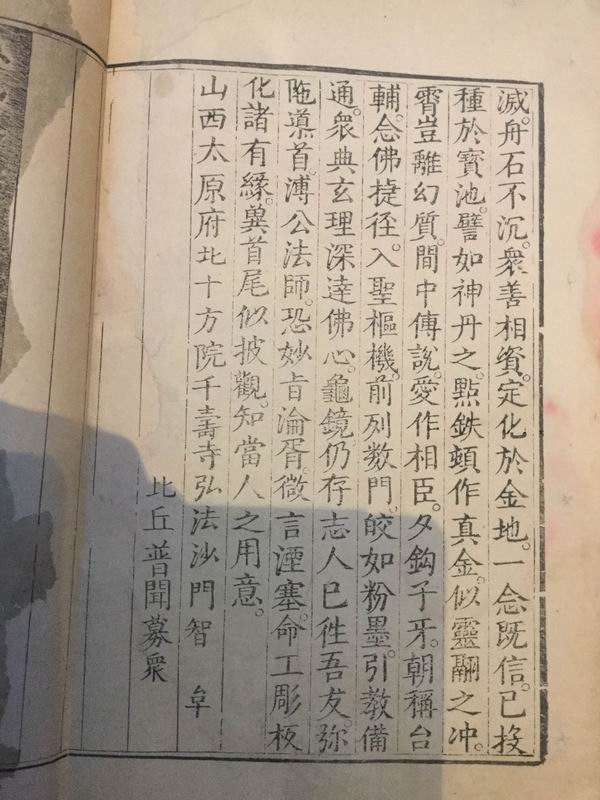 滅。舟石不沉。衆善相資。定化於金地。一念既信。已投
種於寳池。譬如神丹之。㸃鉄頓作真金。似靈翮之冲。
霄豈離幻質。間中傳說。爰作相臣。夕鈎子牙。朝稱台
輔。念佛捷徑。入聖樞機。前列数門。皎如粉墨。引教備
通。衆典玄理深達佛心。龜鏡仍存志人已徃吾友。弥
陁導首。溥公法師。恐妙㫖淪胥。微言湮塞。命工彫板
化諸有縁。兾首尾似披觀。知當人之用意。
山西太原府北十方院千壽寺弘法沙門智
比丘普聞募衆